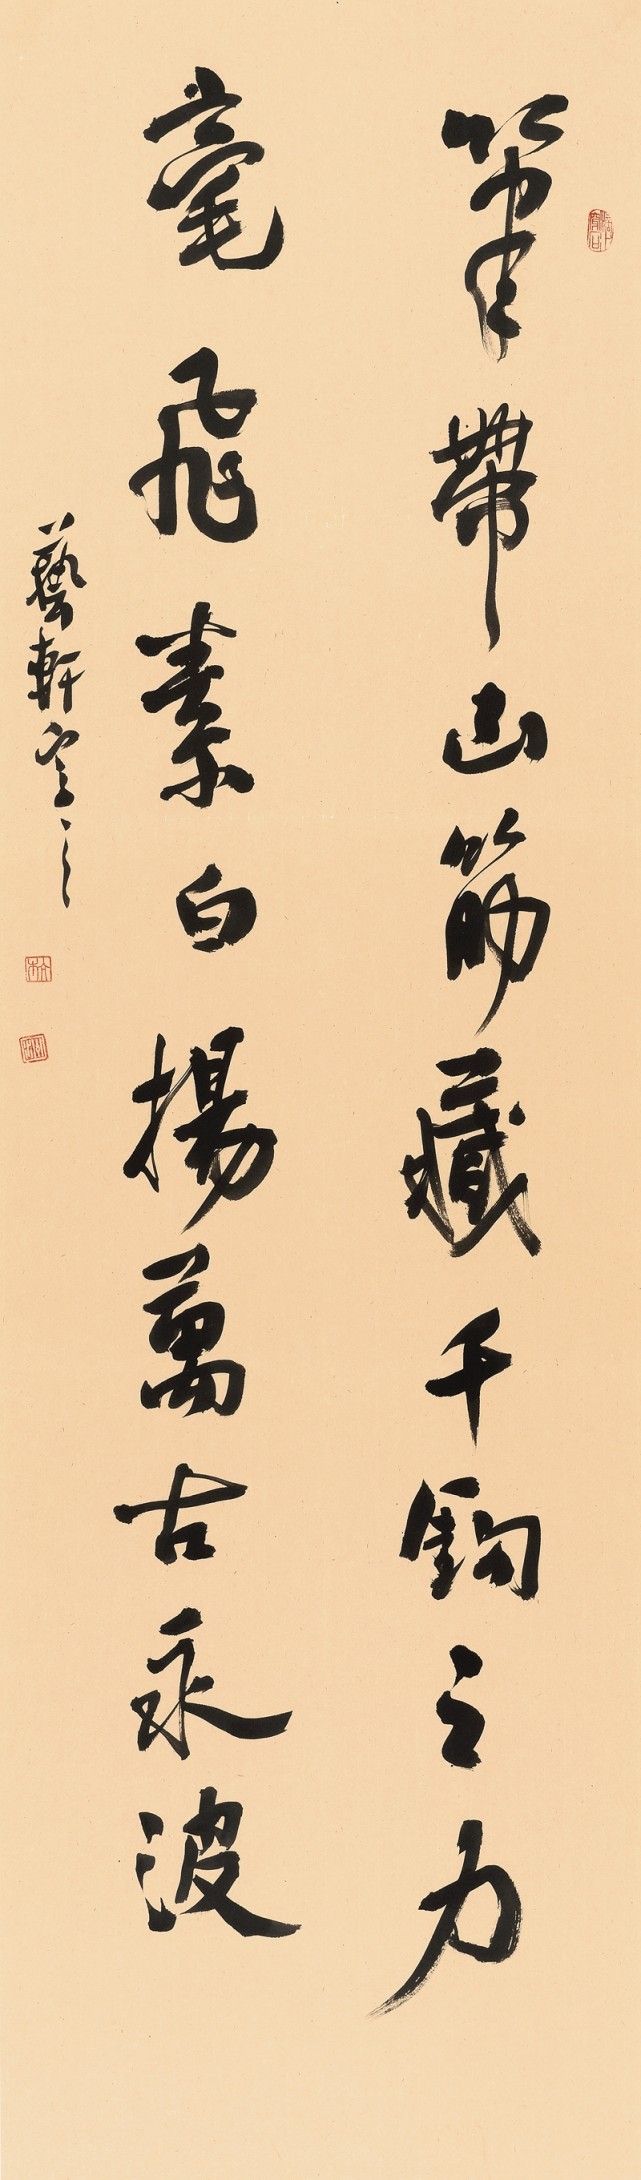 筆帶山筋藏千鈞之力
毫飛素白揚萬古永波
藝軒寫之